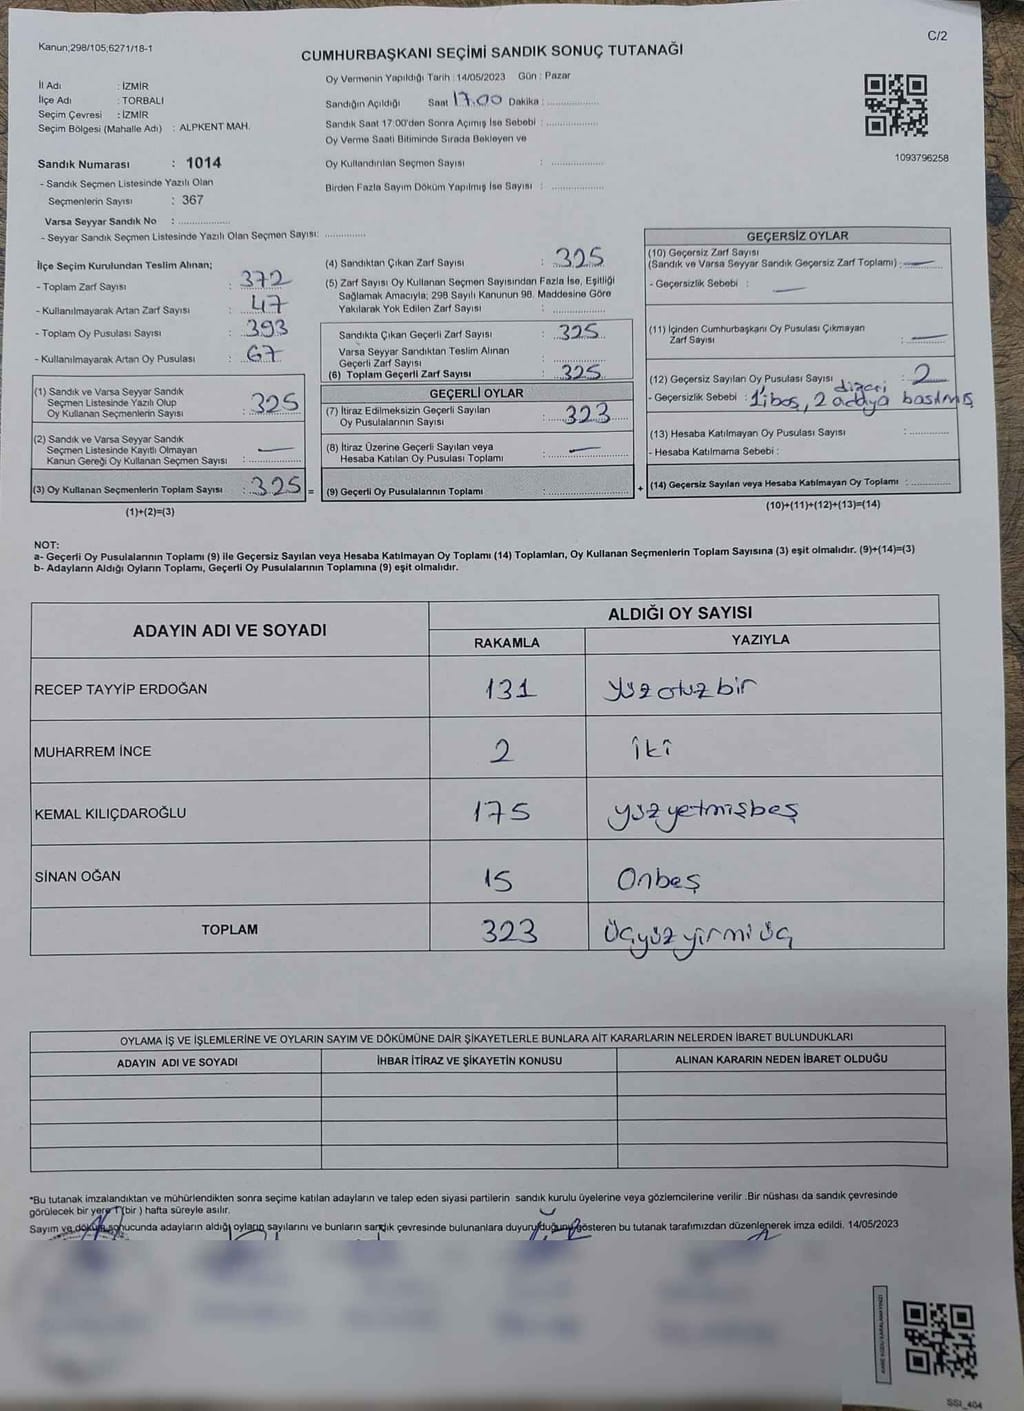 Kanun;298/105;6271/18-1
C/2
CUMHURBAŞKANI SEÇİMİ SANDIK SONUÇ TUTANAĞI
İl Adı : İZMİR
İlçe Adı : TORBALI
Seçim Çevresi : İZMİR
Seçim Bölgesi (Mahalle Adı) : ALPKENT MAH.
Sandık Numarası : 1014
- Sandık Seçmen Listesinde Yazılı Olan
Seçmenlerin Sayısı : 367
Varsa Seyyar Sandık No : ..................
- Seyyar Sandık Seçmen Listesinde Yazılı Olan Seçmen Sayısı: ..............
Oy Vermenin Yapıldığı Tarih : 14/05/2023 Gün : Pazar
Sandığın Açıldığı Saat 17.00 Dakika : ..................
Sandık Saat 17:00'den Sonra Açımış İse Sebebi : ..................
Oy Verme Saati Bitiminde Sırada Bekleyen ve
Oy Kullandırılan Seçmen Sayısı : ..................
Birden Fazla Sayım Döküm Yapılmış İse Sayısı : ..................
1093796258
İlçe Seçim Kurulundan Teslim Alınan;
- Toplam Zarf Sayısı : 372
- Kullanılmayarak Artan Zarf Sayısı : 47
- Toplam Oy Pusulası Sayısı : 393
- Kullanılmayarak Artan Oy Pusulası : 67
(1) Sandık ve Varsa Seyyar Sandık
Seçmen Listesinde Yazılı Olup
Oy Kullanan Seçmenlerin Sayısı : 325
(2) Sandık ve Varsa Seyyar Sandık
Seçmen Listesinde Kayıtlı Olmayan
Kanun Gereği Oy Kullanan Seçmen Sayısı : —
(3) Oy Kullanan Seçmenlerin Toplam Sayısı : 325 =
(1)+(2)=(3)
(4) Sandıktan Çıkan Zarf Sayısı : 325
(5) Zarf Sayısı Oy Kullanan Seçmen Sayısından Fazla İse, Eşitliği
Sağlamak Amacıyla; 298 Sayılı Kanunun 98. Maddesine Göre
Yakılarak Yok Edilen Zarf Sayısı : ..................
Sandıkta Çıkan Geçerli Zarf Sayısı : 325
Varsa Seyyar Sandıktan Teslim Alınan
Geçerli Zarf Sayısı : ..................
(6) Toplam Geçerli Zarf Sayısı : 325
GEÇERLİ OYLAR
(7) İtiraz Edilmeksizin Geçerli Sayılan
Oy Pusulalarının Sayısı : 323
(8) İtiraz Üzerine Geçerli Sayılan veya
Hesaba Katılan Oy Pusulası Toplamı : —
(9) Geçerli Oy Pusulalarının Toplamı : .................. +
GEÇERSİZ OYLAR
(10) Geçersiz Zarf Sayısı
(Sandık ve Varsa Seyyar Sandık Geçersiz Zarf Toplamı) : —
- Geçersizlik Sebebi : —
(11) İçinden Cumhurbaşkanı Oy Pusulası Çıkmayan
Zarf Sayısı : —
(12) Geçersiz Sayılan Oy Pusulası Sayısı : 2
- Geçersizlik Sebebi : 1'i boş, diğeri 2 adaya basılmış
(13) Hesaba Katılmayan Oy Pusulası Sayısı : ............
- Hesaba Katılmama Sebebi :
(14) Geçersiz Sayılan veya Hesaba Katılmayan Oy Toplamı : ............
(10)+(11)+(12)+(13)=(14)
NOT:
a- Geçerli Oy Pusulalarının Toplamı (9) ile Geçersiz Sayılan veya Hesaba Katılmayan Oy Toplamı (14) Toplamları, Oy Kullanan Seçmenlerin Toplam Sayısına (3) eşit olmalıdır. (9)+(14)=(3)
b- Adayların Aldığı Oyların Toplamı, Geçerli Oy Pusulalarının Toplamına (9) eşit olmalıdır.
ADAYIN ADI VE SOYADI
ALDIĞI OY SAYISI
RAKAMLA YAZIYLA
RECEP TAYYİP ERDOĞAN 131 yüzotuzbir
MUHARREM İNCE 2 iki
KEMAL KILIÇDAROĞLU 175 yüzyetmişbeş
SİNAN OĞAN 15 Onbeş
TOPLAM 323 üçyüzyirmiüç
OYLAMA İŞ VE İŞLEMLERİNE VE OYLARIN SAYIM VE DÖKÜMÜNE DAİR ŞİKAYETLERLE BUNLARA AİT KARARLARIN NELERDEN İBARET BULUNDUKLARI
ADAYIN ADI VE SOYADI İHBAR İTİRAZ VE ŞİKAYETİN KONUSU ALINAN KARARIN NEDEN İBARET OLDUĞU
*Bu tutanak imzalandıktan ve mühürlendikten sonra seçime katılan adayların ve talep eden siyasi partilerin sandık kurulu üyelerine veya gözlemcilerine verilir .Bir nüshası da sandık çevresinde
görülecek bir yere 1 (bir ) hafta süreyle asılır.
Sayım ve döküm sonucunda adayların aldığı oyların sayılarını ve bunların sandık çevresinde bulunanlara duyurulduğunu gösteren bu tutanak tarafımızdan düzenlenerek imza edildi. 14/05/2023
SSI_404